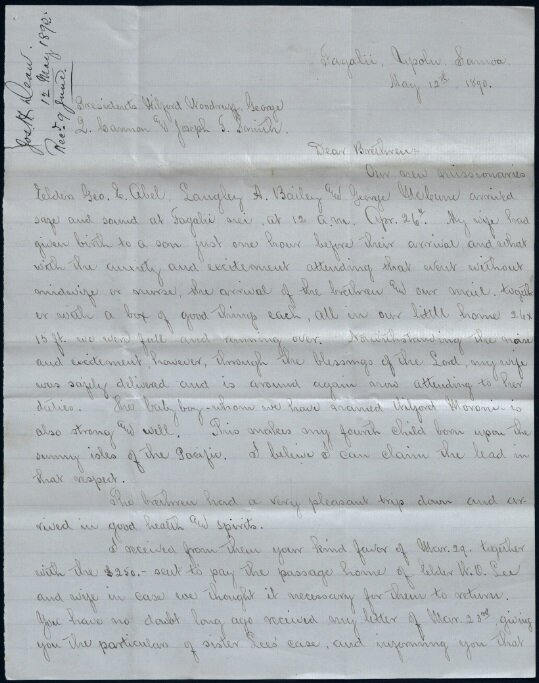 Jos H Dean.
12 May 1890.
Rec'd 9 June.
Fagalii, Upolu, Samoa
May 12th 1890.
Presidents Wilford Woodruff, George
Q. Cannon & Joseph F. Smith.
Dear Brethren:
Our new missionaries
Elders Geo. E. Abel, Langley A. Bailey & George McCune arrived
safe and sound at Fagalii nei, at 12 a.m. Apr. 26th. My wife had
given birth to a son just one hour before their arrival and what
with the anxiety and excitement attending that event without
midwife or nurse, the arrival of the brethren & our mail, togeth-
er with a box of good things each, all in our little home 26 x
15 ft. we were full and running over. Notwithstanding the noise
and excitement, however, through the blessings of the Lord, my wife
was safely delivered and is around again now attending to her
duties. The baby boy - whom we have named Wilford Moroni - is
also strong & well. This makes my fourth child born upon the
sunny isles of the Pacific. I believe I can claim the lead in
that respect.
The brethren had a very pleasant trip down and ar-
rived in good health & spirits.
I received from them your kind favor of Mar. 29. together
with the $250.- sent to pay the passage home of Elder W. O. Lee
and wife in case we thought it necessary for them to return.
You have no doubt long ago received my letter of Mar. 23rd, giving
you the particulars of sister Lees' case, and informing you that